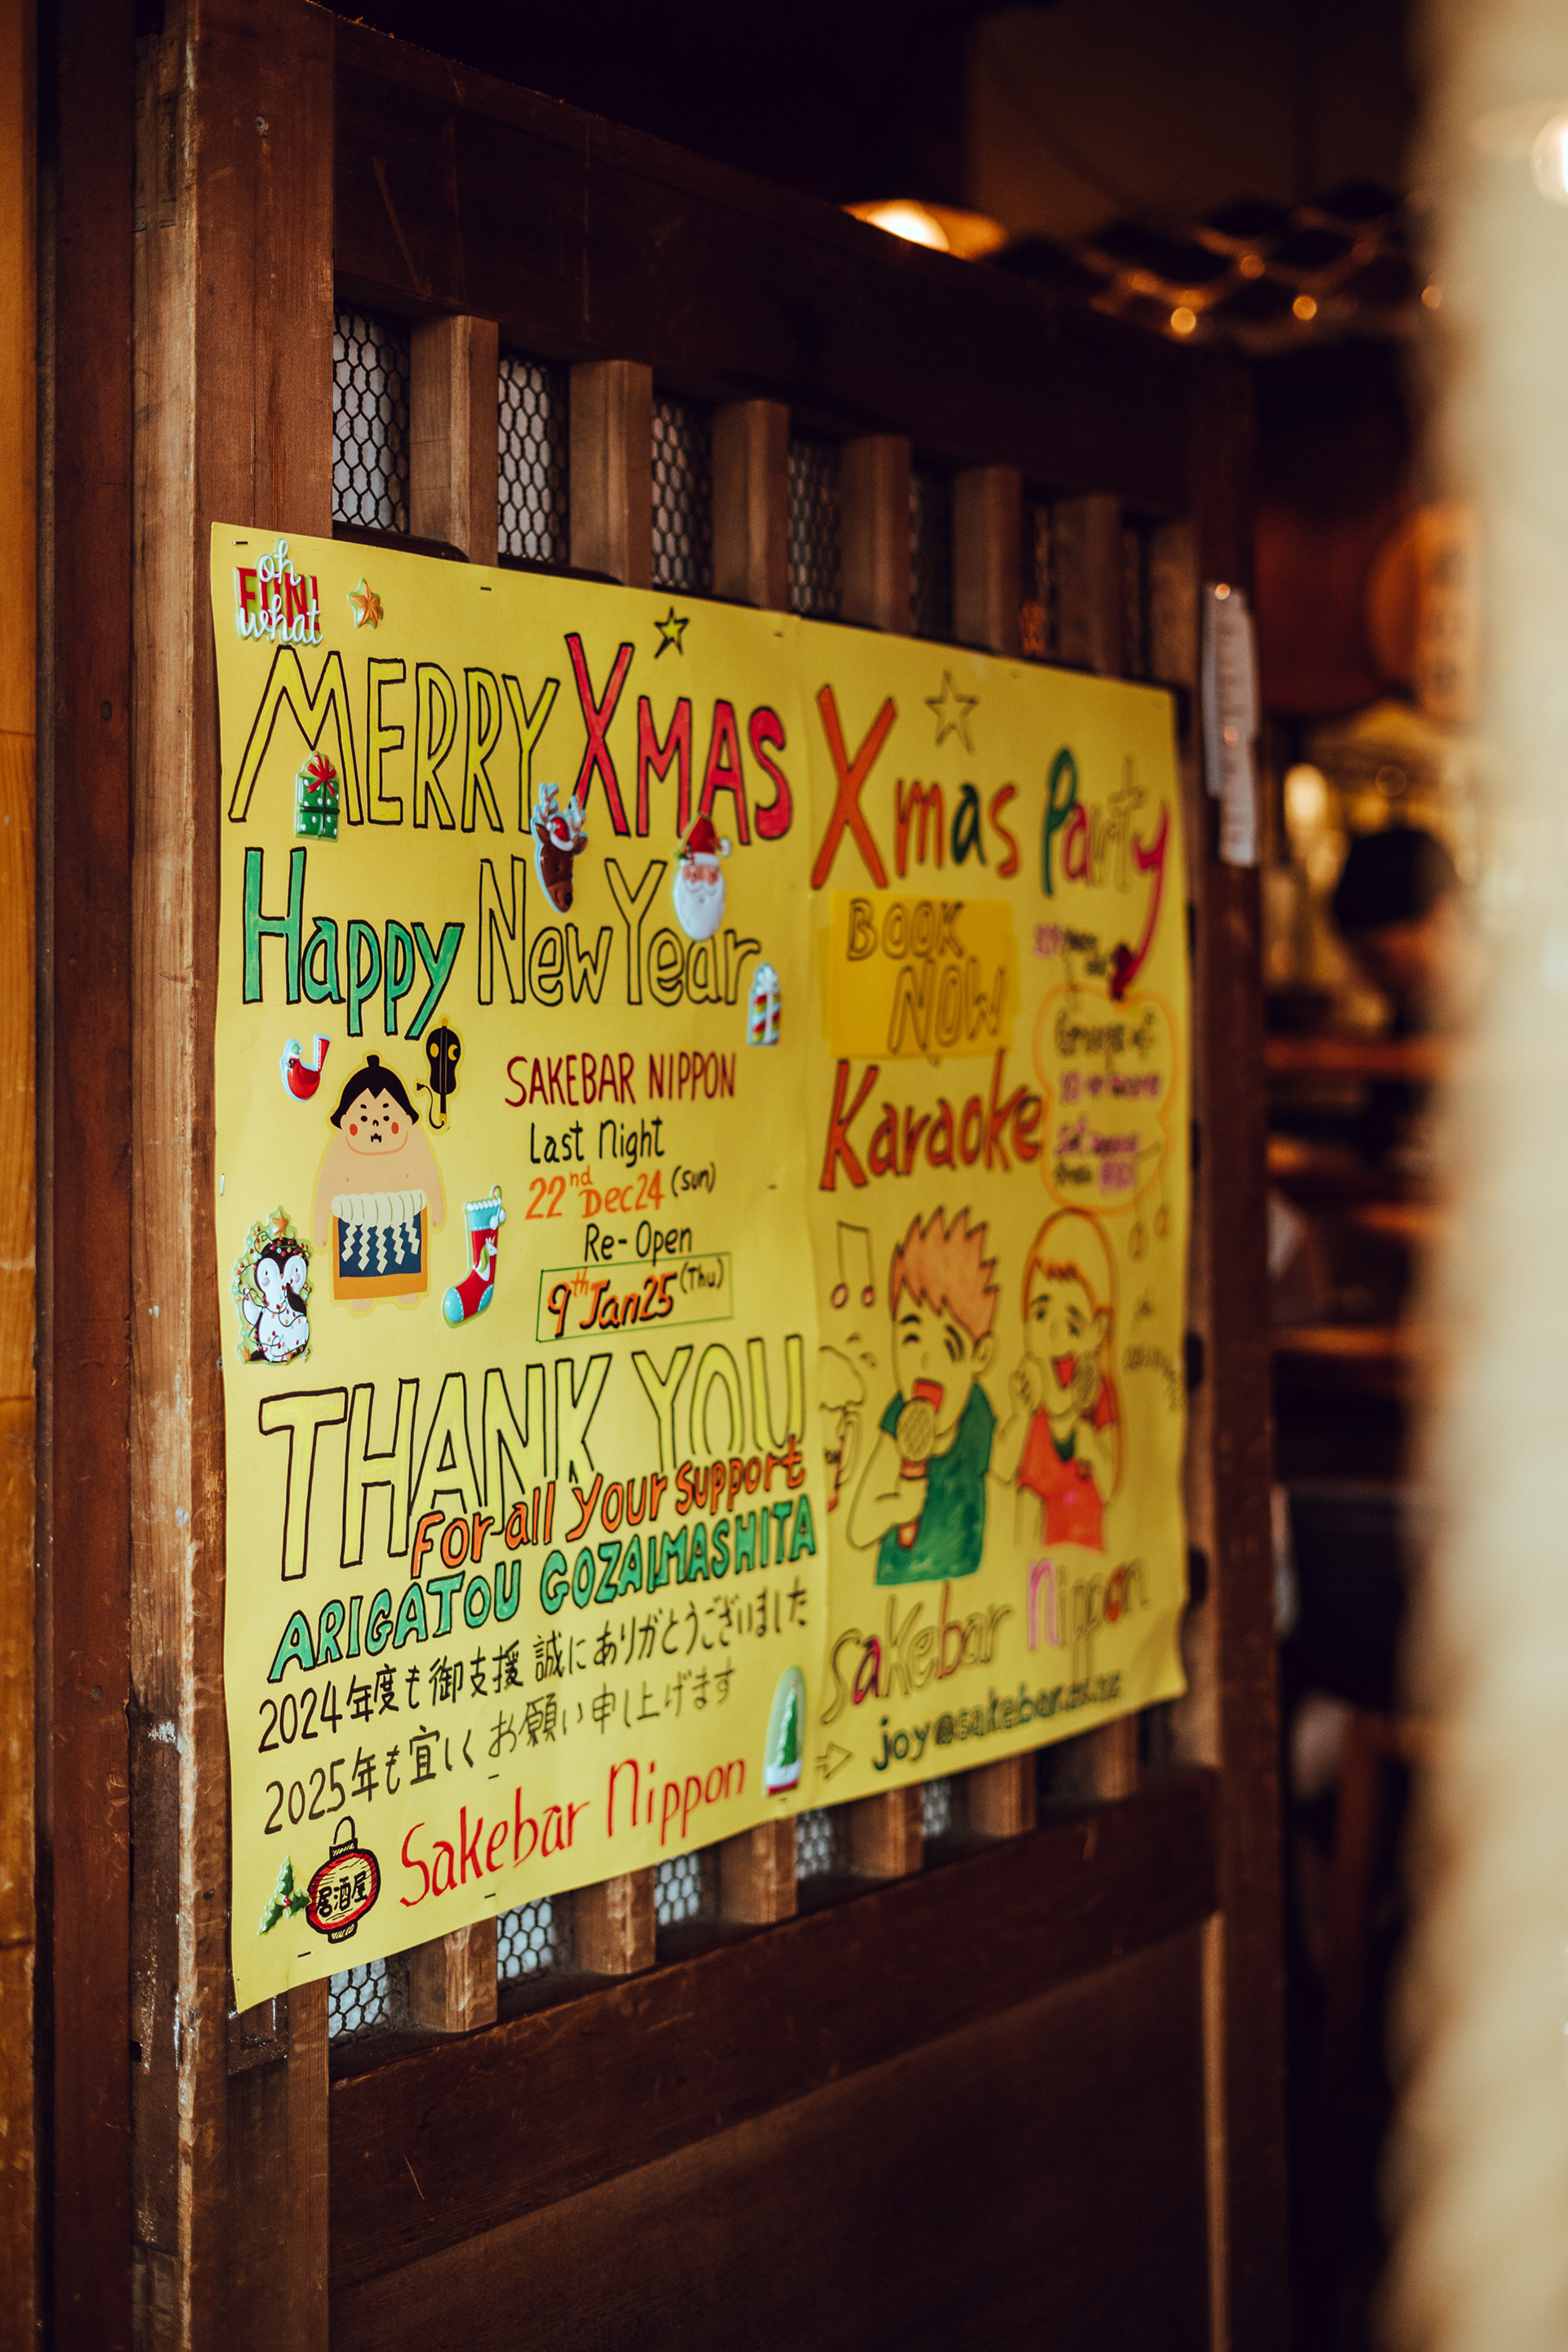 oh
FUN!
what
MERRY XMAS
Happy New Year
SAKEBAR NIPPON
Last Night
22nd Dec24 (Sun)
Re-Open
9th Jan25 (Thu)
THANK YOU
for all your support
ARIGATOU GOZAIMASHITA
2024年度も御支援 誠にありがとうございました
2025年も宜しく お願い申し上げます
居酒屋
Sakebar Nippon
Xmas Party
BOOK
NOW
Groups of
10 or more
Karaoke
Sakebar Nippon
joy@sakebar.co.nz